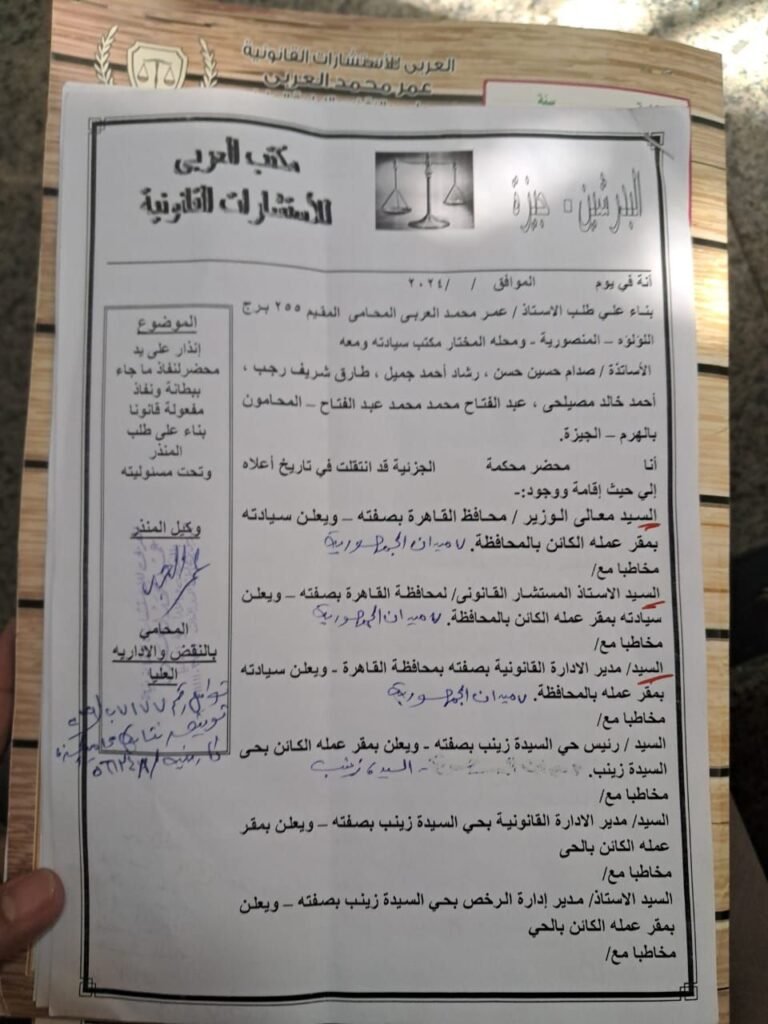 العربى للأستشارات القانونية
عمر محمد العربى
سنة
مكتب العربى
للأستشارات القانونية
البدرشين - جيزة
أنة في يوم الموافق / /٢٠٢٤
بناء علي طلب الاستاذ / عمر محمد العربى المحامى المقيم ٢٥٥ برج
اللؤلؤه – المنصورية - ومحله المختار مكتب سيادته ومعه
الأساتذة / صدام حسين حسن ، رشاد أحمد جميل ، طارق شريف رجب ،
أحمد خالد مصيلحى ، عبد الفتاح محمد محمد عبد الفتاح – المحامون
بالهرم – الجيزة.
أنا محضر محكمة الجزئية قد انتقلت في تاريخ أعلاه
إلي حيث إقامة ووجود:-
السيد معالى الوزير / محافظ القاهرة بصفته – ويعلن سيادته
بمقر عمله الكائن بالمحافظة. ميدان الجمهورية
مخاطبا مع/
السيد الاستاذ المستشار القانونى/ لمحافظة القاهرة بصفته – ويعلن
سيادته بمقر عمله الكائن بالمحافظة. ميدان الجمهورية
مخاطبا مع/
السيد/ مدير الادارة القانونية بصفته بمحافظة القاهرة - ويعلن سيادته
بمقر عمله بالمحافظة. ميدان الجمهورية
مخاطبا مع/
السيد / رئيس حي السيدة زينب بصفته - ويعلن بمقر عمله الكائن بحى
السيدة زينب. - السيدة زينب
مخاطبا مع/
السيد/ مدير الادارة القانونية بحي السيدة زينب بصفته – ويعلن بمقر
عمله الكائن بالحى
مخاطبا مع/
السيد الاستاذ/ مدير إدارة الرخص بحي السيدة زينب بصفته – ويعلن
بمقر عمله الكائن بالحي
مخاطبا مع/
الموضوع
إنذار على يد
محضرلنفاذ ما جاء
ببطانة ونفاذ
مفعولة قانونا
بناء على طلب
المنذر
وتحت مسئوليته
وكيل المنذر
المحامي
بالنقض والاداريه
العليا